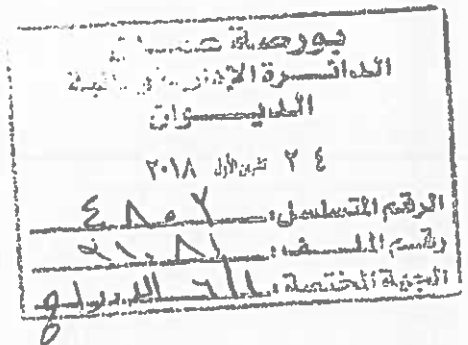 بورصة عمان
الدائرة الإدارية والمالية
الديوان
٢٤ تشرين الأول ٢٠١٨
الرقم المتسلسل: ٤٨٠٢
رقم الملف:
الجهة المختصة: